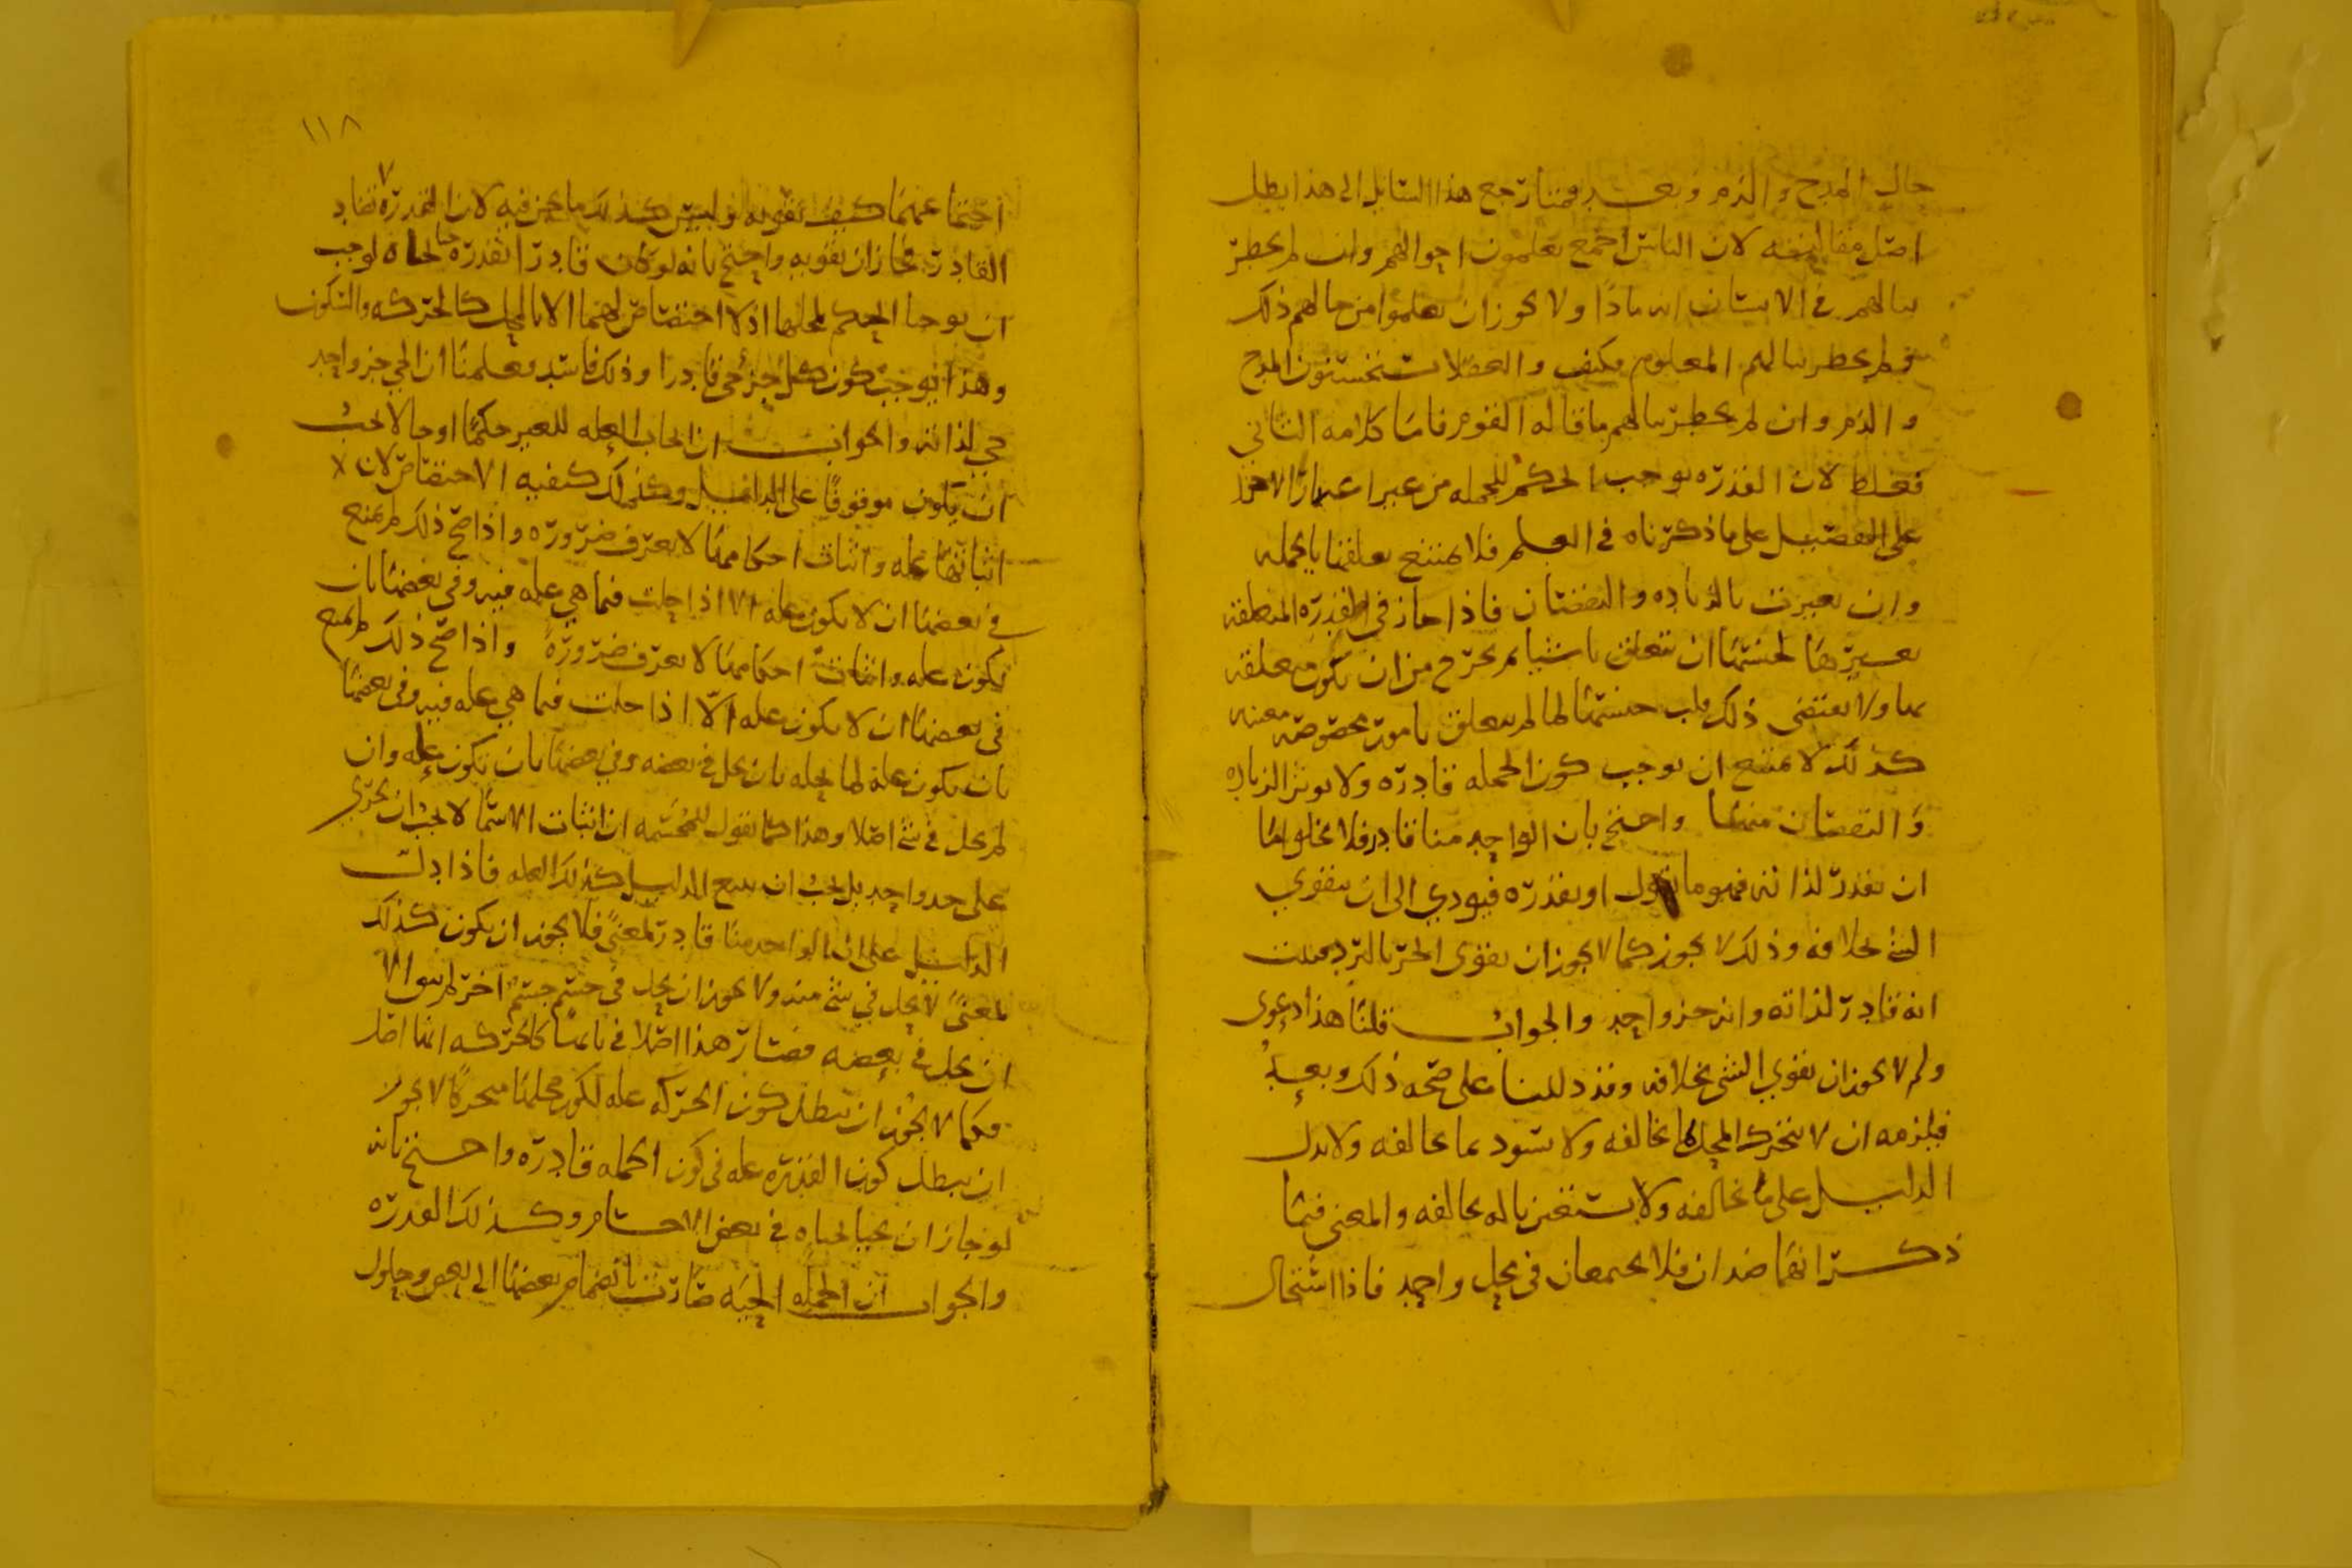 حال المدح والذم وبعد فمتى رجع هذا السايل الى هذا بطل
اصل مقالته لان الناس اجمع يعلمون احوالهم وان لم يخطر
ببالهم في الانسان انه ماذا ولا يجوز ان يعلموا من حالهم ذلك
ولم يخطر ببالهم المعلوم فكيف والعقلا يستحسنون المدح
والذم وان لم يخطر ببالهم ما قاله القوم فاما كلامه الثاني
فغلط لان القدره توجب الحكم للجمله من غير اعتبار الاجزا
على التفصيل على ما ذكرناه في العلم فلا يمتنع تعلقها بالجمله
وان تغيرت بالزياده والنقصان فاذا جاز في القدره المتعلقه
بغيرها لجنسها ان تتعلق باشيا لم يخرج من ان تكون متعلقه
بها ولا يقتضى ذلك قلب جنسها لما لم يتعلق بامور مخصوصه معينه
كذلك لا يمتنع ان توجب كون الجمله قادره ولا يوثر الزياده
والنقصان منها واحتج بان الواحد منا قادر فلا يخلو اما
ان يقدر لذاته فهو ما نقول او بقدره فيودي الى ان يقوي
الشي بخلافه وذلك لا يجوز كما لا يجوز ان يقوى الحر بالبرد فثبت
انه قادر لذاته وانه جزو واحد والجواب قلنا هذا دعوى
ولم لا يجوز ان يقوي الشي بخلافه وقد دللنا على صحه ذلك وبعد
فيلزمه ان لا يتحرك المحل بما يخالفه ولا يسود بما يخالفه ولا يدل
الدليل على ما يخالفه ولا يستغني بما له يخالفه والمعنى فيما
ذكر انهما ضدان فلا يجتمعان في محل واحد فاذا استحال
١١٨
اجتماعهما كيف يقويه وليس كذلك ما نحن فيه لان القدره لا تضاد
القادر فجاز ان يقويه واحتج بانه لو كان قادرا بقدره حيا بحياه لوجب
ان يوجبا الحكم لمحلهما اذ لا اختصاص لهما الا بالمحل كالحركه والسكون
وهذا يوجب كون كل جزء حي قادرا وذلك فاسد فعلمنا ان الحي جزو واحد
حي لذاته والجواب ان ايجاب العله للغير حكما او حالا يجب
ان يكون موقوفا على الدليل وكذلك كيفيه الاختصاص لان
اثباتها عله واثبات احكامها لا يعرف ضروره واذا صح ذلك لم يمتنع
في بعضها ان لا يكون عله الا اذا حلت فيما هي عله فيه وفي بعضها بان
يكون عله واثبات احكامها لا يعرف ضرورةً واذا صح ذلك لم يمتنع
في بعضها ان لا يكون عله الا اذا حلت فيما هي عله فيه وفي بعضها
بان يكون علة لما يحله بان يحل في بعضه وفي بعضها بان يكون عله وان
لم يحل في شي اصلا وهذا كما نقول للمجسمه ان اثبات الاشيا لا يجب ان يجري
على حد واحد بل يجب ان يتبع الدليل كذلك العله فاذا دلت
الدليل على ان الواحد منا قادر لمعنى فلا يجوز ان يكون كذلك
لمعنى لا يحل في شي منه ولا يجوز ان يحل في جسم جسم اخر لم يبق الا
ان يحل في بعضه فصار هذا اصلا في بابها كالحركه انها اصل
فكما لا يجوز ان يبطل كون الحركه عله لكون محلها متحركا لا يجوز
ان يبطل كون القدره عله في كون الجمله قادره واحتج بانه
لو جاز ان يحيا بحياه في بعض الاجسام وكذلك القدره
والجواب ان الجمله الحيه صارت بانضمام بعضها الى بعض وحلول